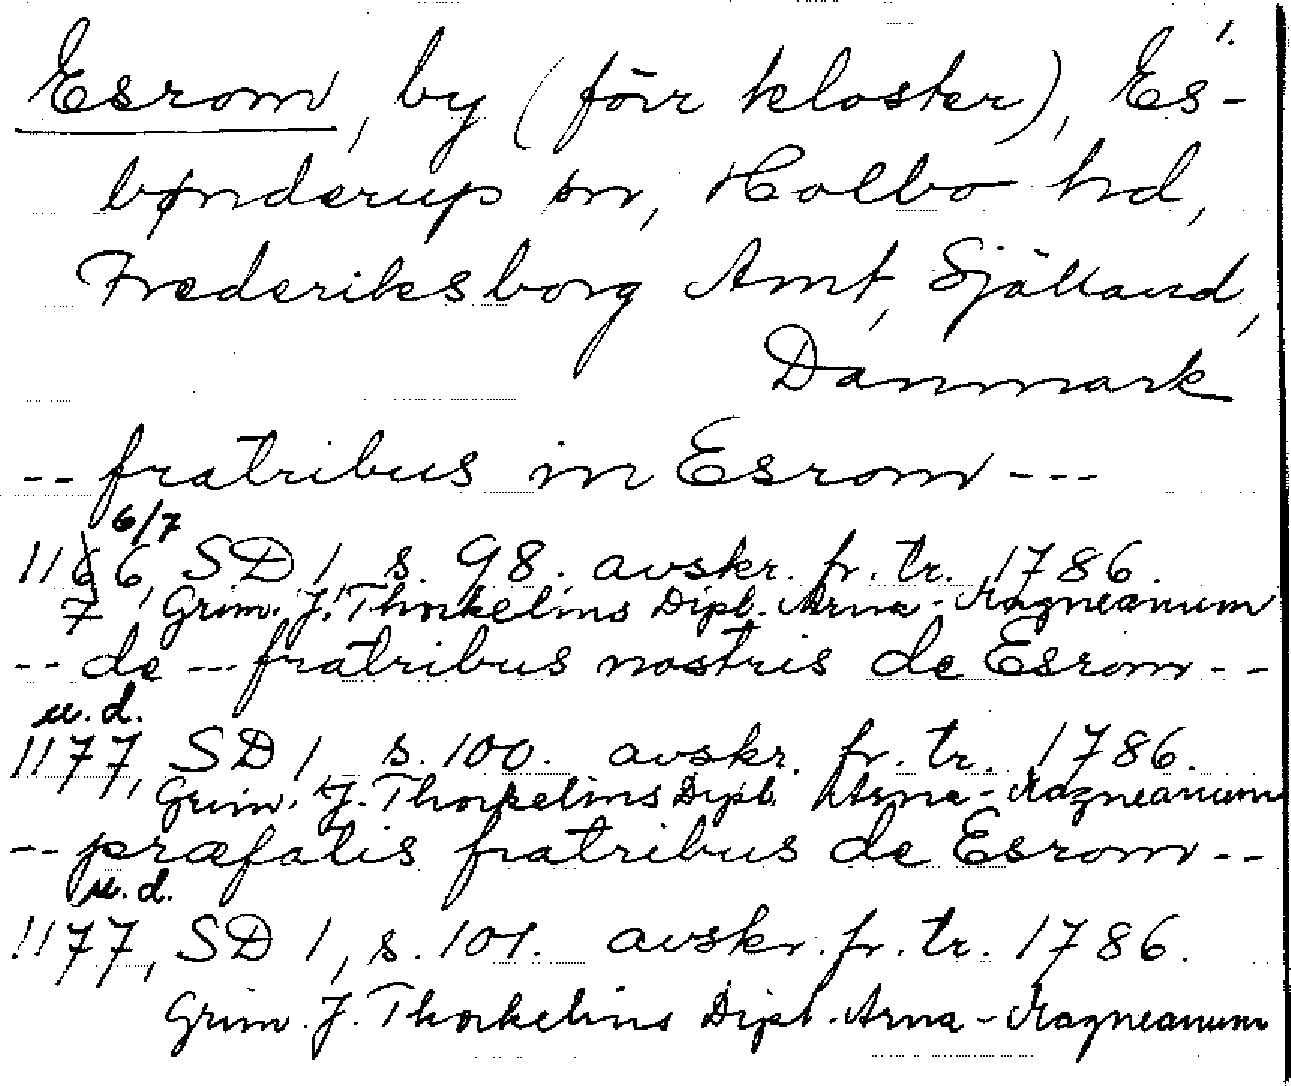 1.
Esrom, by (förr kloster), Es-
bønderup sn, Holbo hd,
Frederiksborg Amt, Själland,
Danmark
-- fratribus in Esrom ---
6/7
1166, SD 1, s. 98. avskr. fr. tr. 1786.
7 Grim. J. Thorkelins Dipl. Arna-Magneanum
-- de --- fratribus nostris de Esrom --
u. d.
1177, SD 1, s. 100. avskr. fr. tr. 1786.
Grim. J. Thorkelins Dipl. Arna-Magneanum
-- præfatis fratribus de Esrom --
u. d.
1177, SD 1, s. 101. avskr. fr. tr. 1786.
Grim. J. Thorkelins Dipl. Arna-Magneanum